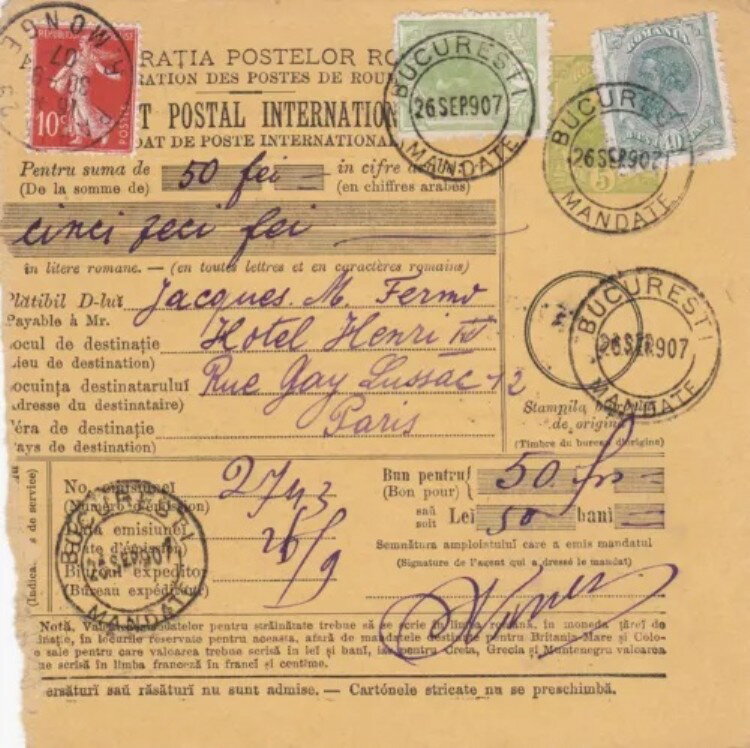 RAȚIA POSTELOR RO
RATION DES POSTES DE ROU
T POSTAL INTERNATION
DAT DE POSTE INTERNATIONAL
10c
POSTES
ROMANIA
40
5
BUCURESTI
26 SEP 907
MANDATE
BUCURESTI
26 SEP 907
MANDATE
Pentru suma de 50 lei in cifre
(De la somme de) (en chiffres arabes)
cinci zeci lei
în litere romane. — (en toutes lettres et en caractères romains)
Plătibil D-lui Jacques. M. Fermo
Payable à Mr.
Locul de destinație Hotel Henri IV
Lieu de destination)
Locuința destinatarului Rue Gay Lussac 12
Adresse du destinataire)
Țéra de destinație Paris
Pays de destination)
BUCURESTI
26 SEP 907
MANDATE
Stampila
de origine
(Timbre du bureau d'origine)
(Indica. s de service)
No. emisiunei 2743
(Numéro d'émission)
Data emisiunei 26/9
Date d'émission)
Biuroul expeditor
(Bureau expéditeur)
26 SEP 907
Bun pentru 50 frs
(Bon pour)
sau
soit Lei 50 bani
Semnătura amploiatului care a emis mandatul
(Signature de l'agent qui a dressé le mandat)
Notă. Valoarea mandatelor pentru străinătate trebue să se scrie în limba română, în moneda țărei de
inație, în locurile reservate pentru aceasta, afară de mandatele destinate pentru Britania-Mare și Colo-
e sale pentru care valoarea trebue scrisă în lei și bani, iar pentru Creta, Grecia și Muntenegru valoarea
ue scrisă în limba franceză în franci și centime.
ersături sau răsături nu sunt admise. — Cartónele stricate nu se preschimbă.